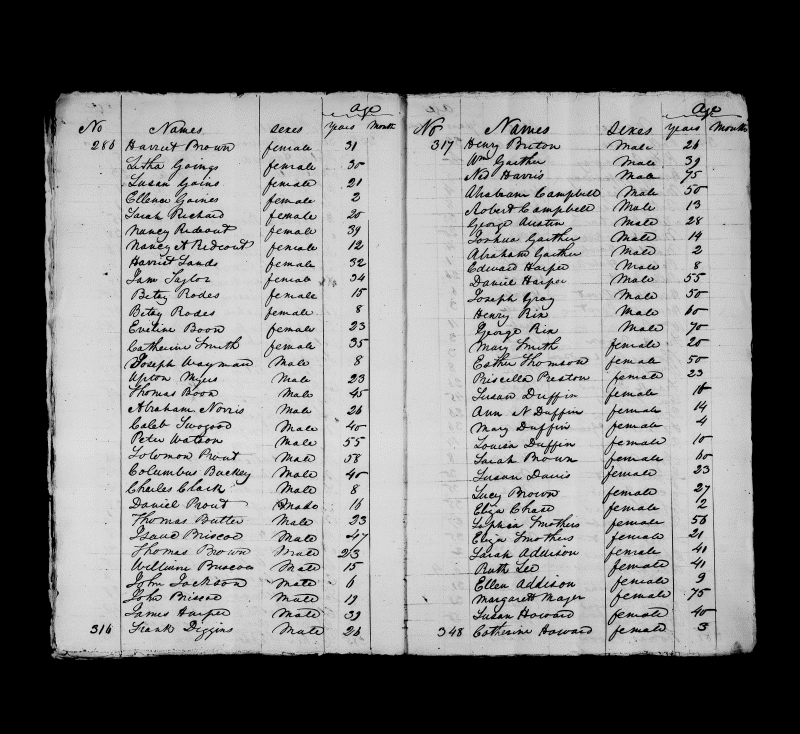 Age
No Names Sexes Years Month
286 Harriet Brown female 31
Litha Goings female 30
Susan Gains female 21
Ellena Gaines female 2
Sarah Richard female 20
Nancy Ridout female 39
Nancy A Ridout female 12
Harriet Sands female 32
Jane Taylor female 34
Betsy Rodes female 15
Betsy Rodes female 8
Eveline Boon female 23
Catherine Smith female 35
Joseph Wayman Male 8
Upton Myers Male 23
Thomas Boon Male 45
Abraham Norris Male 26
Caleb Twogood Male 40
Peter Watson Male 55
Solomon Prout Male 58
Columbus Buckey Male 40
Charles Clark Male 8
Daniel Prout Made 16
Thomas Butler Male 23
Isaac Briscoe Male 47
Thomas Brown Male 23
William Briscoe Male 15
John Jackson Male 6
John Briscoe Male 19
James Harper Male 39
316 Frank Diggins Male 26
Age
No Names Sexes Years Months
317 Henry Breton Male 26
Wm Gaither Male 39
Ned Harris Male 75
Abraham Campbell Male 50
Robert Campbell Male 13
George Austin Male 28
Joshua Gaither Male 14
Abraham Gaither Male 2
Edward Harper Male 8
Daniel Harper Male 55
Joseph Gray Male 50
Henry Rix Male 60
George Rix Male 70
Mary Smith female 20
Esther Thomson female 50
Priscilla Preston female 23
Susan Duffin female 18
Ann N Duffin female 14
Mary Duffin female 4
Louisa Duffin female 10
Sarah Brown female 60
Susan Davis female 23
Lucy Brown female 27
Eliza Chase female 2
Sophia Smothers female 56
Eliza Smothers female 21
Sarah Addison female 41
Ruth Lee female 41
Ellen Addison female 9
Margarett Mager female 75
Susan Howard female 40
348 Catherine Howard female 3